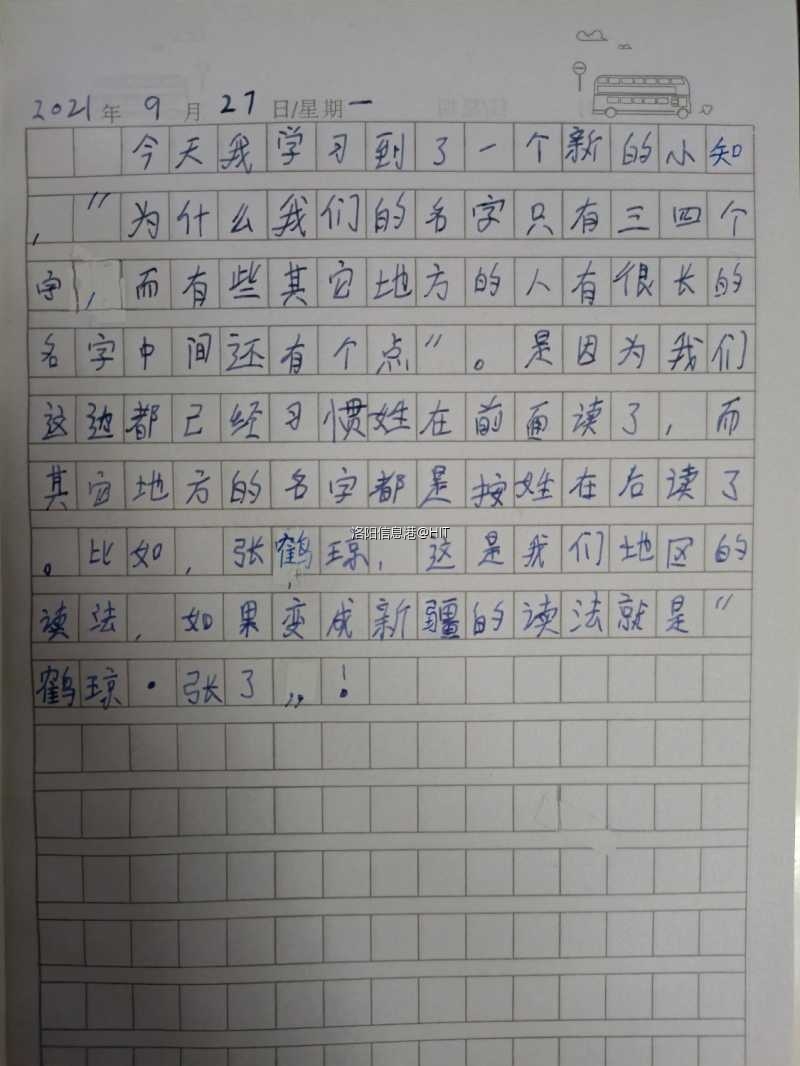 2021年 9月 27日/星期一
今天我学习到了一个新的小知
，"为什么我们的名字只有三四个
字，而有些其它地方的人有很长的
名字中间还有个点"。是因为我们
这边都已经习惯姓在前面读了，而
其它地方的名字都是按姓在后读了
。比如，张鹤琼，这是我们地区的
洛阳信息港@HIT
读法，如果变成新疆的读法就是"
鹤琼·张了"！